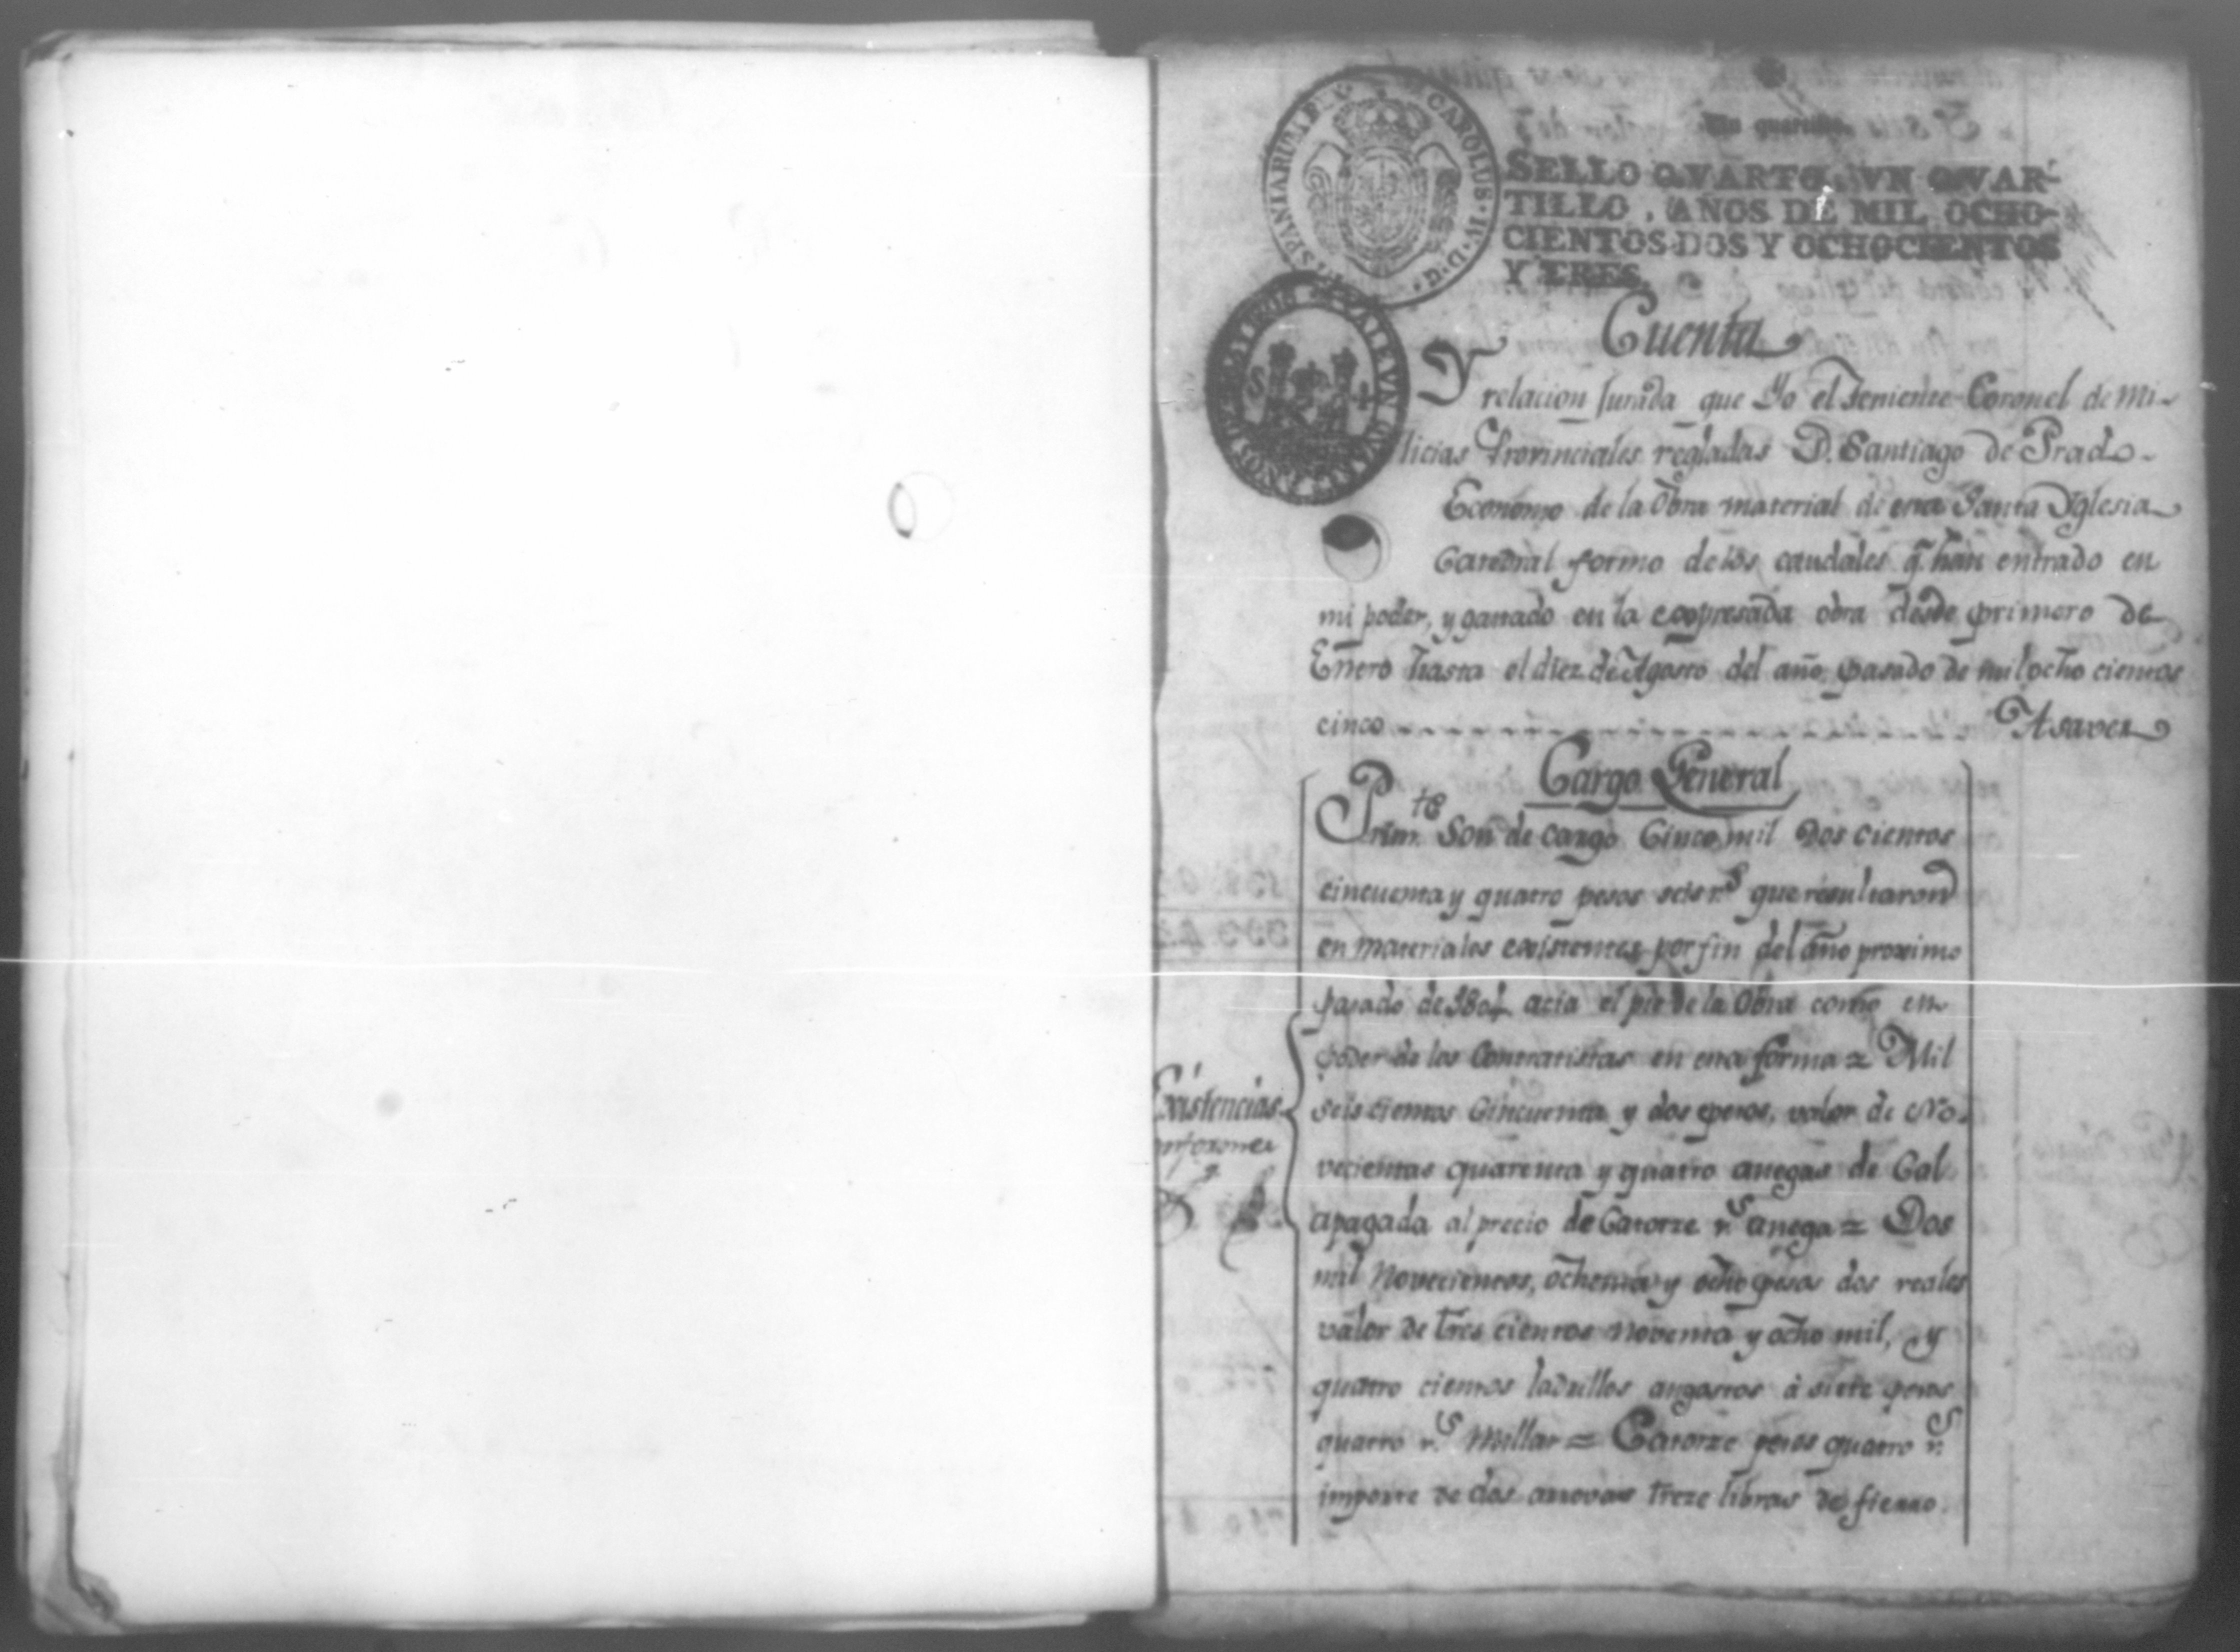 Un quartillo
HISPANIARUM REX
CAROLUS · IV · D · G ·
SELLO QVARTO, VN QVAR-
TILLO, AÑOS DE MIL OCHO-
CIENTOS DOS Y OCHOCIENTOS
Y TRES.
VALE VN
S 4
Cuenta
Y relacion Jurada que Yo el Teniente Coronel de Mi-
licias Provinciales regladas D. Santiago de Prado
Economo de la Obra material de esta Santa Yglesia
Catedral formo de los caudales q. han entrado en
mi poder, y gastado en la expresada obra desde primero de
Enero hasta el diez de Agosto del año pasado de mil ocho cientos
cinco Asaver
Cargo General
Prim.te Son de cargo Cinco mil Dos cientos
cincuenta y quatro pesos seis r.s que resultaron
en materiales existentes por fin del año proximo
pasado de 1804 acia el pie de la Obra como en
poder de los Contratistas en esta forma = Mil
seis cientos Cincuenta y dos pesos, valor de No-
vecientas quarenta y quatro anegas de Cal
apagada al precio de Catorze r.s anega = Dos
mil Novecientos, ochenta y ocho pesos dos reales
valor de tres cientos noventa y ocho mil, y
quatro cientos ladrillos angostos à siete pesos
quatro r.s Millar = Catorze pesos quatro r.s
importe de dos arrovas treze libras de fierro.
Existencias